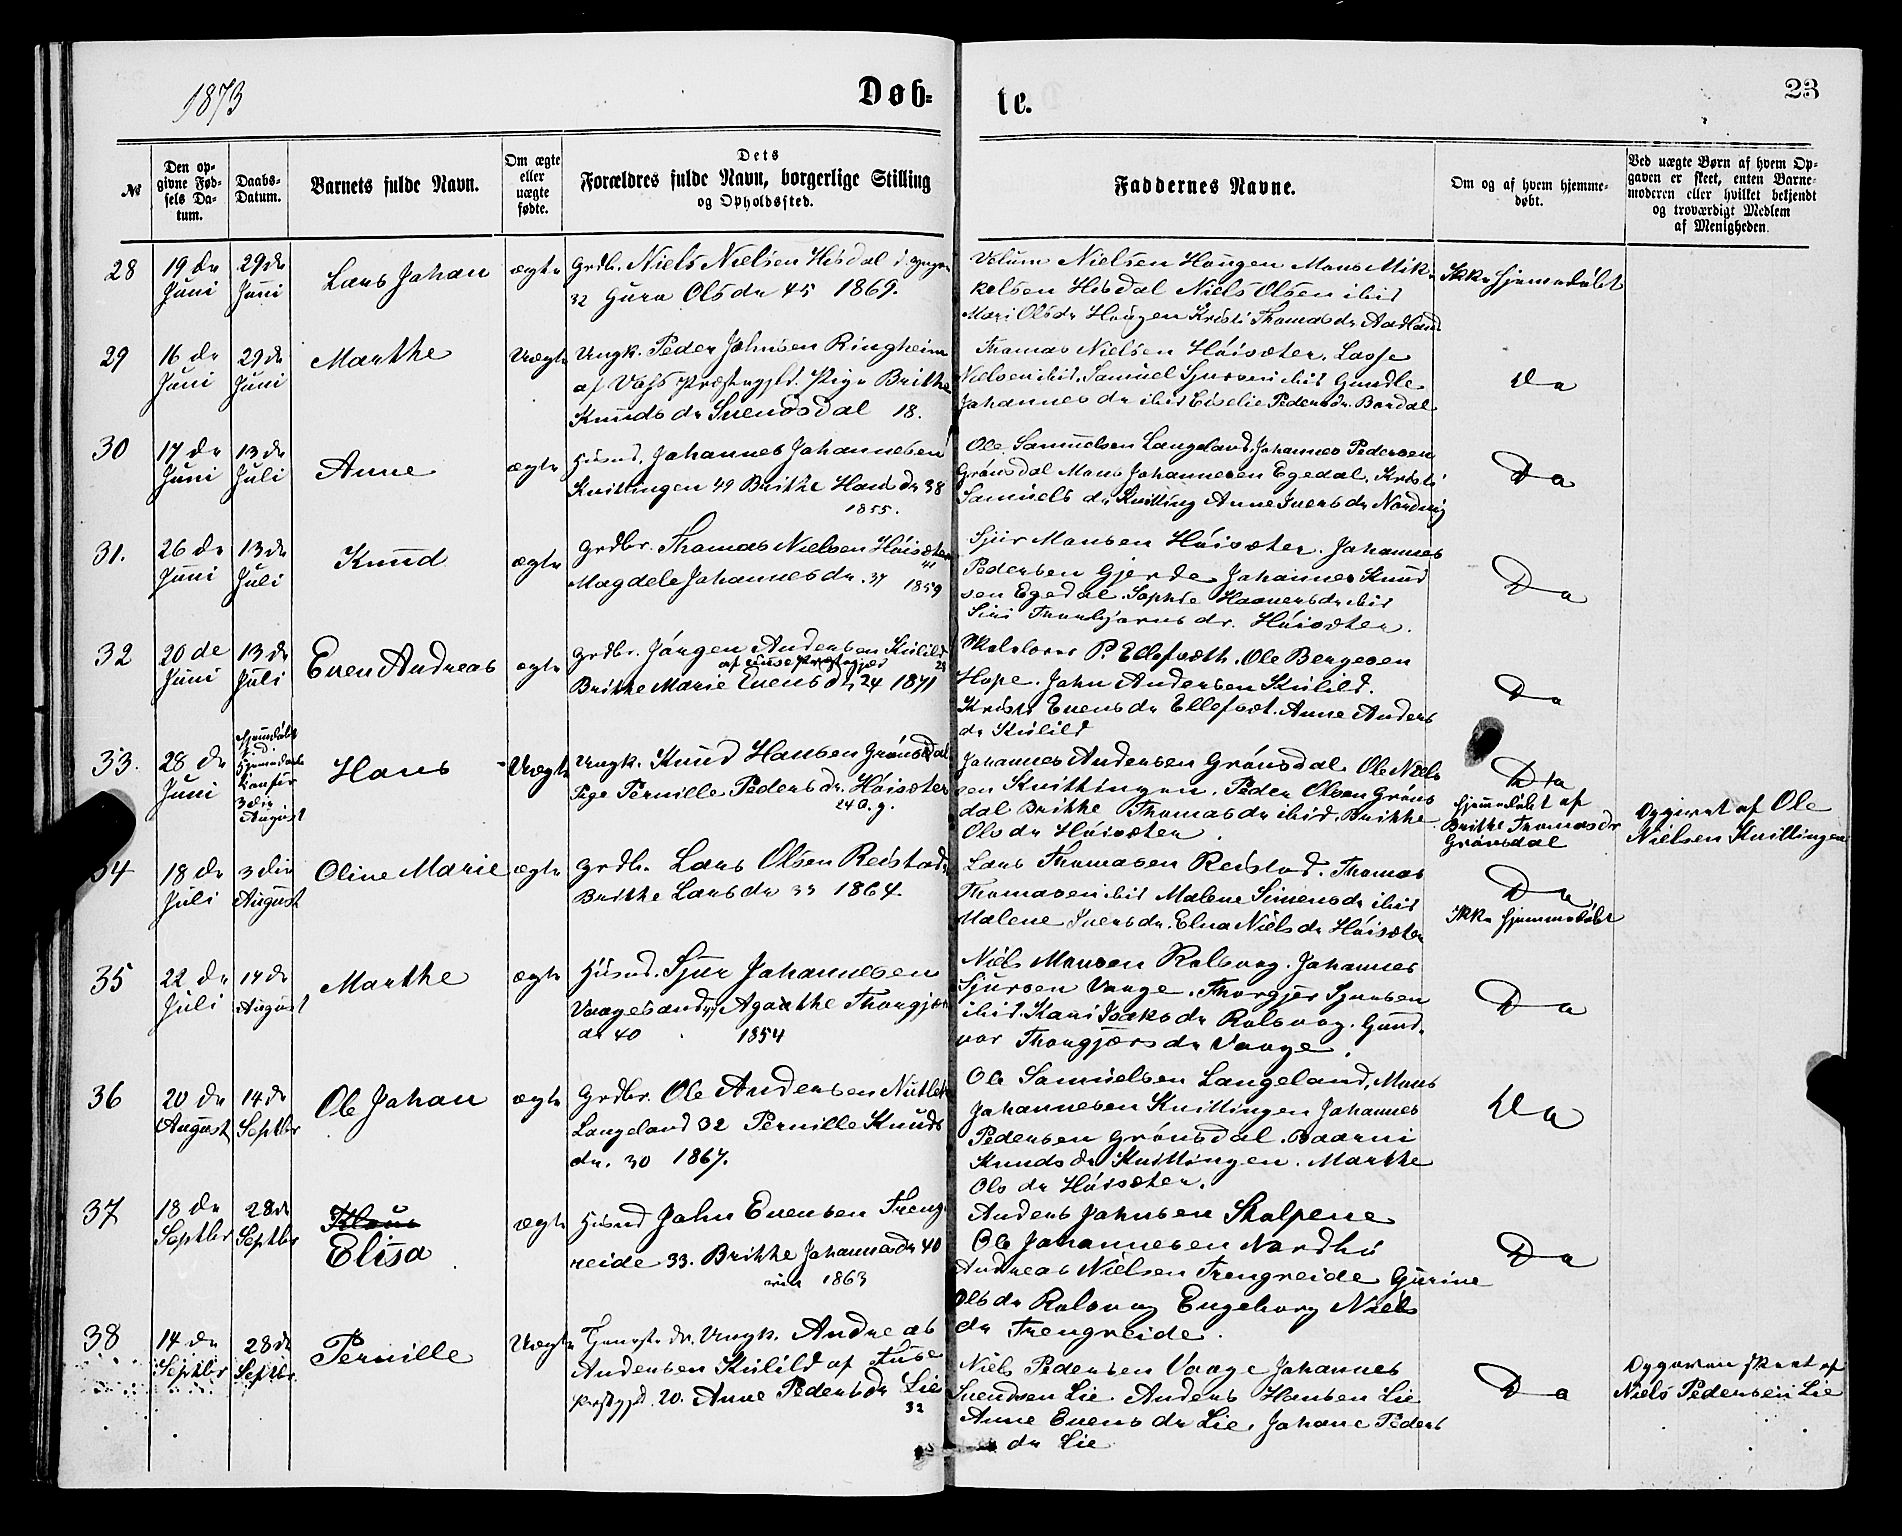 1873
Døb-
te.
23
№
Den op-
givne Fød-
sels Da-
tum.
Daabs-
Datum.
Barnets fulde Navn.
Om ægte
eller
uægte
fødte.
Dets
Forældres fulde Navn, borgerlige Stilling
og Opholdssted.
Faddernes Navne.
Om og af hvem hjemme-
døbt.
Ved uægte Børn af hvem Op-
gaven er skeet, enten Barne-
moderen eller hvilket bekjendt
og troværdigt Medlem
af Menigheden.
28
19 de
Juni
29 de
Juni
Lars Johan
ægte
Grdbr. Niels Nielsen Hisdal
32 Guro Olsdr 45 1869.
Nielsen Haugen Mons Mik-
kelsen Hisdal Niels Olsen ibid
Mari Olsdr Haugen Kristi Thomasdr Aadland
Ikke hjemmedøbt
29
16 de
Juni
29 de
Juni
Marthe
Uægte
Ungk. Peder Johnsen Ringheim
af Voss Præstegjld. Pige Brithe
Knudsdr Svendsdal 18.
Thomas Nielsen Høisæter. Lasse
Nielsen ibid. Samuel Sjursen ibid Gundle
Johannesdr ibid Eiselie Pedersdr. Bardal
Do
30
17 de
Juni
13 de
Juli
Anne
ægte
Husmd. Johannes Johannesen
Knittingen 49 Brithe Hansdr 38
1855.
Ole Samuelsen Langeland. Johannes Pedersen
Grønsdal Mons Johannesen Egedal. Kristi
Samuels dr Knitting Anne Iversdr Nordvig
Do
31.
26 de
Juni
13 de
Juli
Knud
ægte
Grdbr. Thomas Nielsen Høisæter
41
Magdele Johannesdr. 37 1859
Sjur Monsen Høisæter. Johannes
Pedersen Gjerde Johannes Knud
sen Egedal. Sophie Haaversdr ibid
Siri Thorbjørns dr. Høisæter.
Do
32
20 de
Juni
13 de
Juli
Even Andreas
ægte
Grdbr. Jørgen Andersen Kulild
af Fuse Præstegjeld 28
Brithe Marie Evensdr 24 1871
Skolelærer P. Ellefsæth. Ole Bergesen
Hope. John Andersen Kulild.
Kristi Evensdr Ellefsæt. Anne Anders
dr Kulild
Do
33.
28 de
Juni
3 die
August
Hans
Uægte
Ungk. Knud Hansen Grønsdal
Pige Pernille Pedersdr. Høisæter
24 a. g.
Johannes Andersen Grønsdal Ole Niels
sen Knittingen. Peder Olsen Grøns
dal Brithe Thomasdr ibid. Brithe
Olsdr Høisæter.
Do
hjemmedøbt af
Brithe Thomasdr
Grønsdal
Opgivet af Ole
Nielsen Knittingen
34
18 de
Juli
3 die
August
Oline Marie
ægte
Grdbr. Lars Olsen Reistad
Brithe Larsdr 33 1864.
Lars Thomasen Reistad. Thomas
Thomasen ibid Malene Simensdr ibid
Malene Iversdr. Elna Nielsdr Høisæter
Do
Ikke hjemmedøbt
35
22 de
Juli
14 de
August
Marthe
ægte
Husmd. Sjur Johannesen
Vaagesand Agathe Thorgjers
dr 40 1854
Niels Monsen Rolsvog. Johannes
Sjursen Vaage. Thorgjer Sjursen
ibid. Kari Isaksdr Rolsvog. Gund-
vor Thorgjersdr Vaage.
Do
36
20 de
August
14 de
Septbr
Ole Johan
ægte
Grdbr. Ole Andersen
Langeland 32 Pernille Knuds
dr. 30 1867.
Ole Samuelsen Langeland, Mons
Johannesen Knittingen Johannes
Pedersen Grønsdal. Baarni
Knudsdr Knittingen. Marthe
Olsdr Høisæter.
Do
37
18 de
Septbr
28 de
Septbr
Klaus
Elisa
ægte
Husmd John Evensen Treng-
reide 33. Brithe Johannesdr 40
1863
Anders Johnsen Skolpene
Ole Johannesen Nordhu
Andreas Nielsen Trengreide Gjurine
Olsdr Rolsvog Engeborg Niels
dr Trengreide.
Do
38
14 de
Septbr
28 de
Septbr
Pernille
Uægte
Tjenestedr. Ungk. Andreas
Andersen Kulild af Fuse
Prestgjd. 20. Anne Pedersdr Lie
32
Niels Pedersen Vaage Johannes
Svendsen Lie Anders Hansen Lie
Anne Evensdr Lie. Johane Peders
dr Lie
Do
Opgaven skeet af
Niels Pedersen Lie